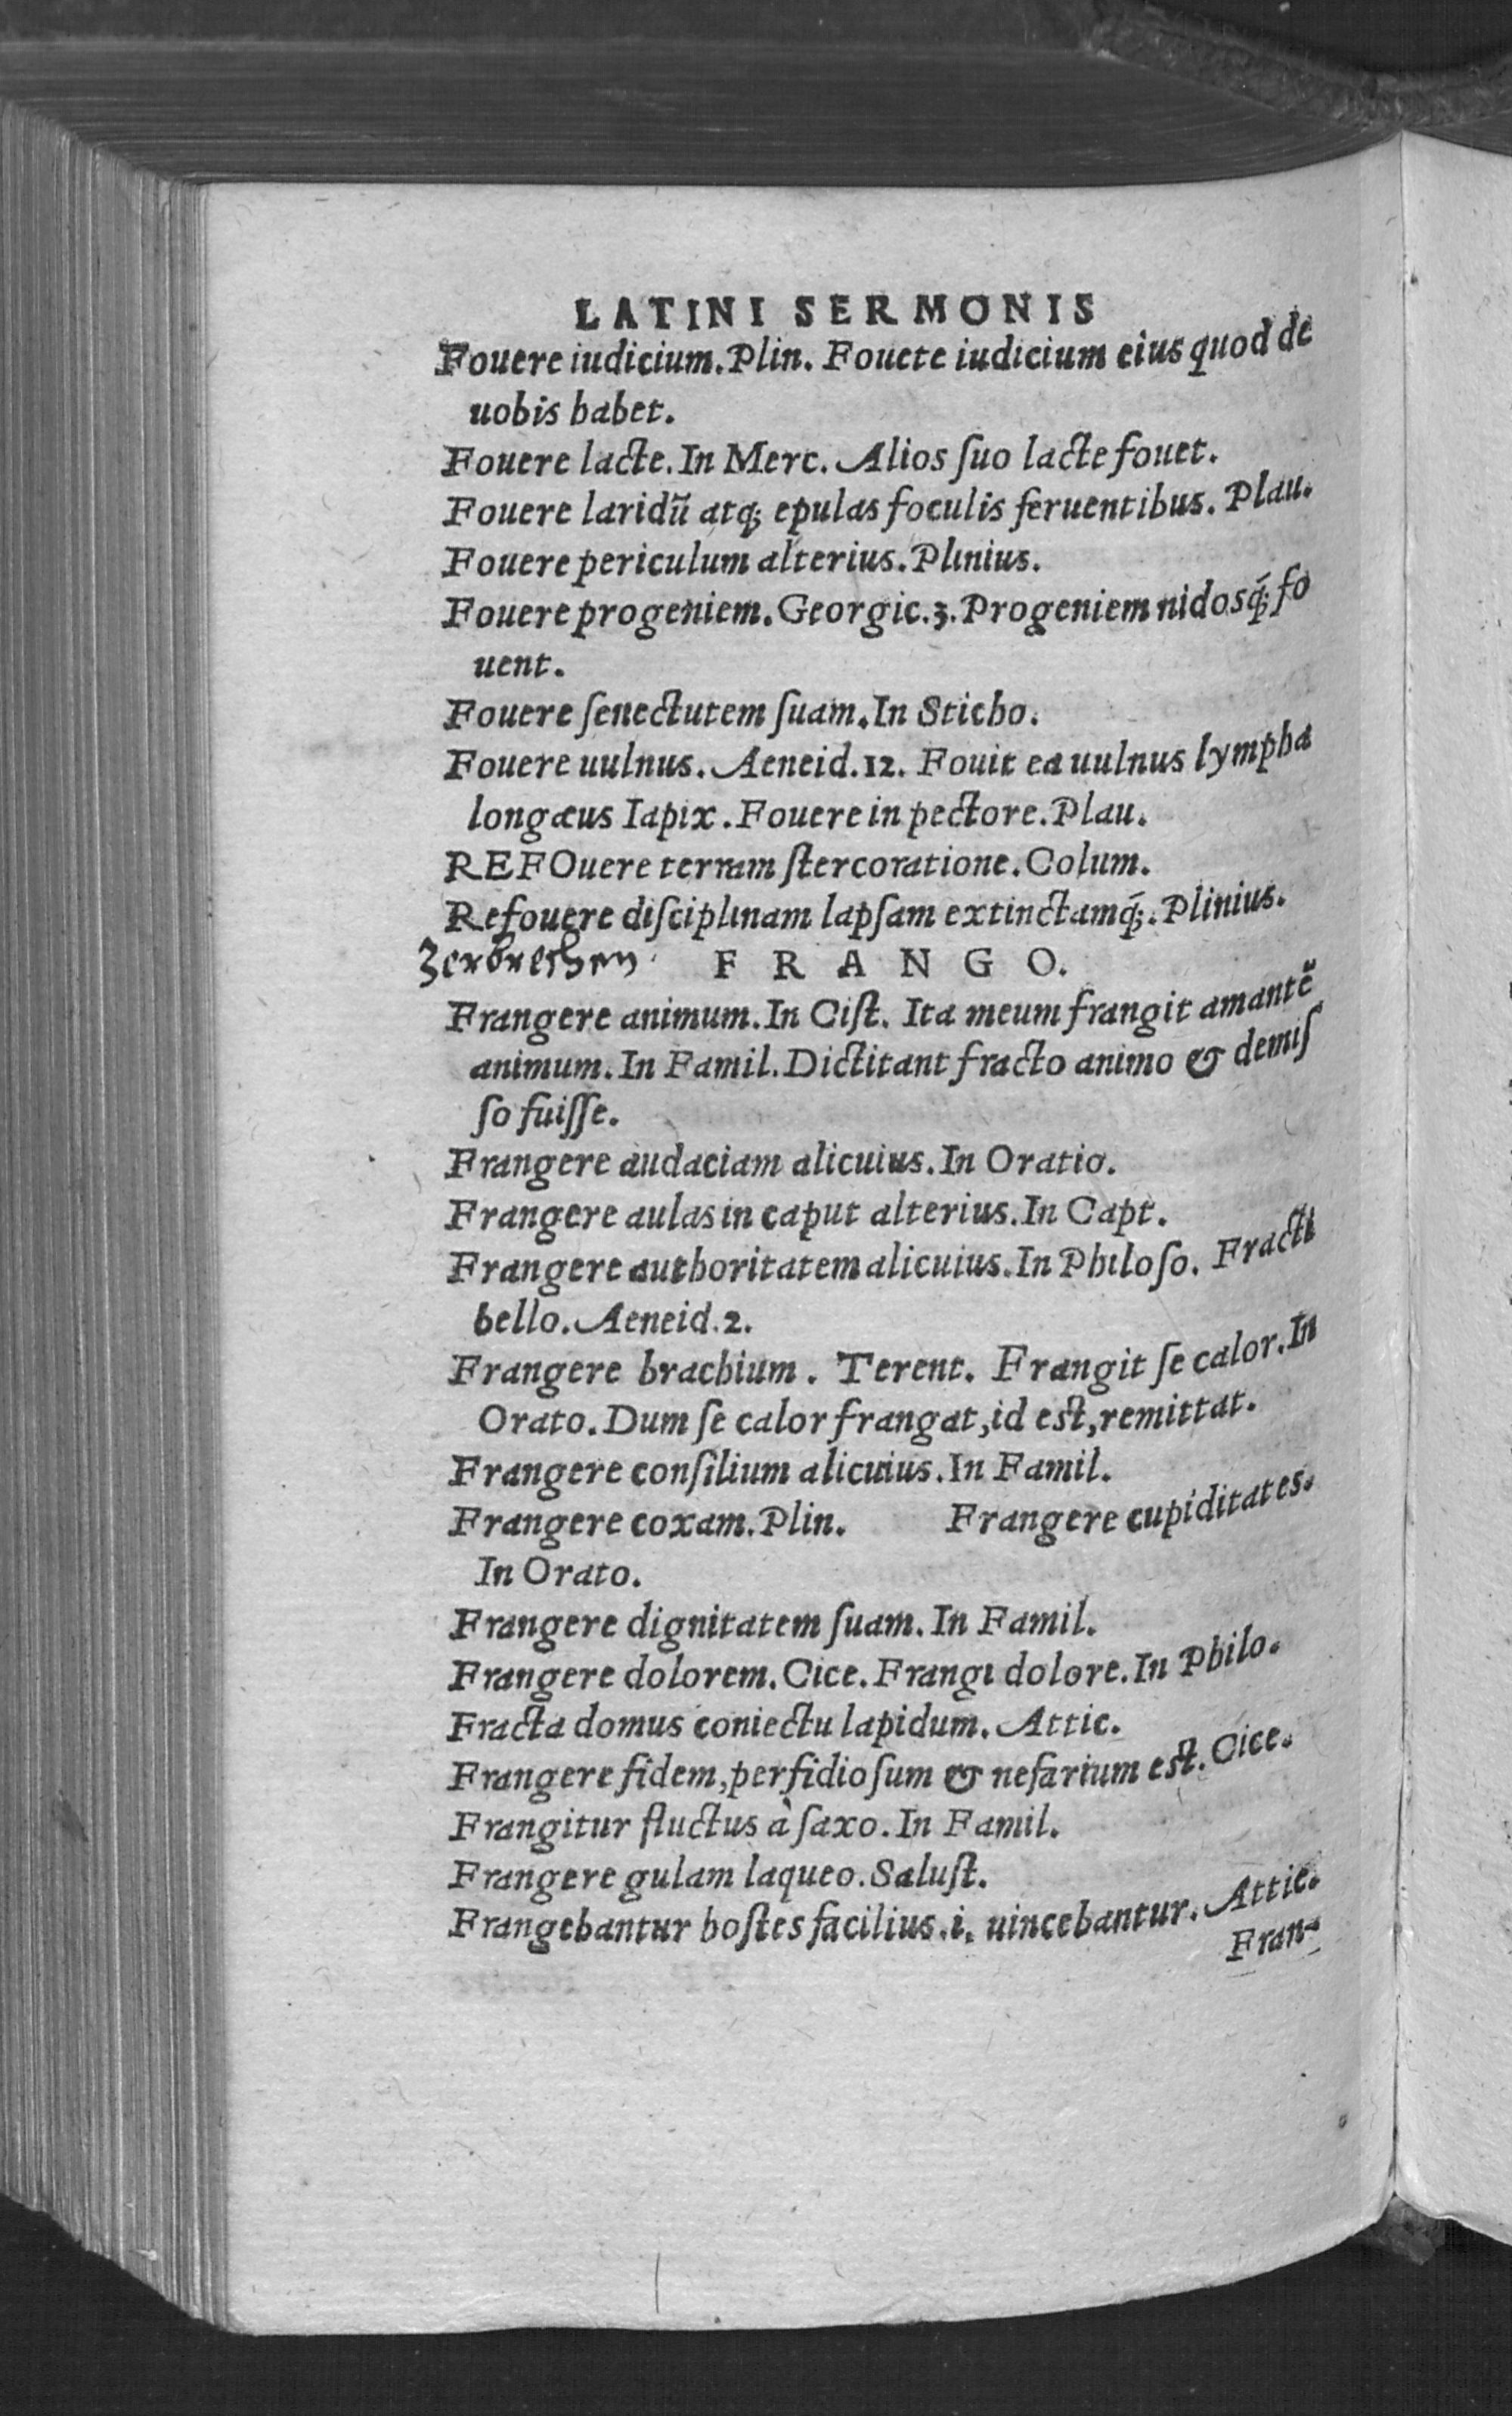 LATINI SERMONIS
Fouere iudicium. Plin. Fouete iudicium eius quod de
uobis habet.
Fouere lacte. In Merc. Alios ſuo lacte fouet.
Fouere laridũ atq; epulas foculis feruentibus. Plau.
Fouere periculum alterius. Plinius.
Fouere progeniem. Georgic. 3. Progeniem nidosq́; fo
uent.
Fouere ſenectutem ſuam. In Sticho.
Fouere uulnus. Aeneid. 12. Fouit ea uulnus lympha
longæus Iapix. Fouere in pectore. Plau.
REFOuere terram ſtercoratione. Colum.
Refouere diſciplinam lapſam extinctamq́;. Plinius.
Zerbrechen F R A N G O.
Frangere animum. In Ciſt. Ita meum frangit amantẽ
animum. In Famil. Dictitant fracto animo & demiſ
ſo fuiſſe.
Frangere audaciam alicuius. In Oratio.
Frangere aulas in caput alterius. In Capt.
Frangere authoritatem alicuius. In Philoſo. Fracti
bello. Aeneid. 2.
Frangere brachium. Terent. Frangit ſe calor. In
Orato. Dum ſe calor frangat, id eſt, remittat.
Frangere conſilium alicuius. In Famil.
Frangere coxam. Plin. Frangere cupiditates.
In Orato.
Frangere dignitatem ſuam. In Famil.
Frangere dolorem. Cice. Frangi dolore. In Philo.
Fracta domus coniectu lapidum. Attic.
Frangere fidem, perfidioſum & nefarium eſt. Cice.
Frangitur fluctus à ſaxo. In Famil.
Frangere gulam laqueo. Saluſt.
Frangebantur hoſtes facilius. i. uincebantur. Attic.
Fran-